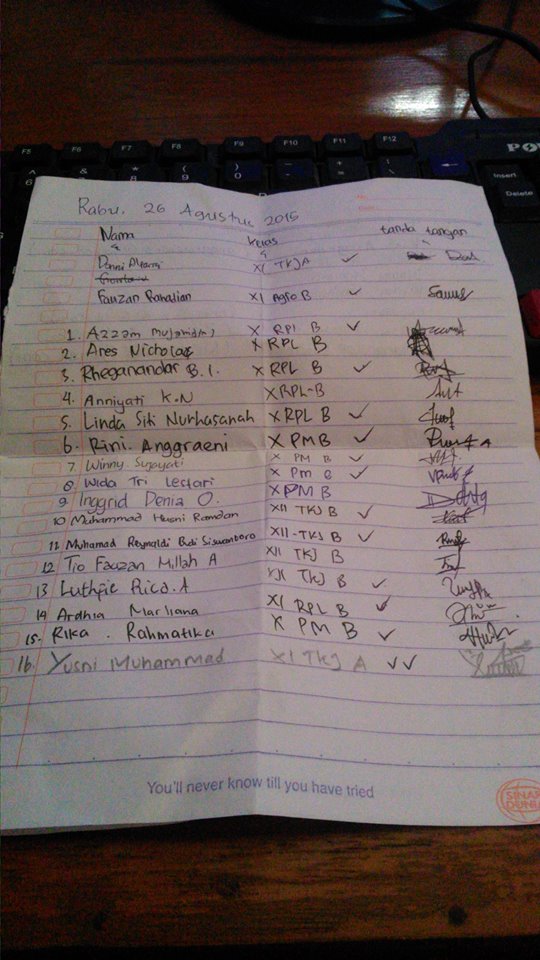 F5 F6 F7 F8 F9 F10 F11 F12
^ & * ( ) _ +
6 7 8 9 0 - =
Insert
Delete
Rabu, 26 Agustus 2015
Nama Kelas tanda tangan
Donni XI TKJ A ✓
Fauzan Ramadian XI Agro B ✓
1. Azzam X RPL B ✓
2. Ares Nicholas X RPL B
3. Rheganandar B.I. X RPL B ✓
4. Anniyati K.N X RPL-B
5. Linda Siti Nurhasanah X RPL B ✓
6. Rini Anggraeni X PM B ✓
7 Winny Supyati X PM B ✓
8 Wida Tri Lestari X Pm B ✓
9 Inggrid Denia O. X PM B
10 Muhammad Husni Ramdan XII TKJ B ✓
11 Muhamad Reynaldi Budi Siswantoro XII-TKJ B ✓
12 Tio Fauzan Millah A XII TKJ B
13 Luthfie Rica.A XII TKJ B ✓
14 Ardhia Marliana XI RPL B ✓
15. Rika . Rahmatika X PM B ✓
16. Yusni Muhammad XI TKJ A ✓✓
You'll never know till you have tried
SINAR
DUNIA